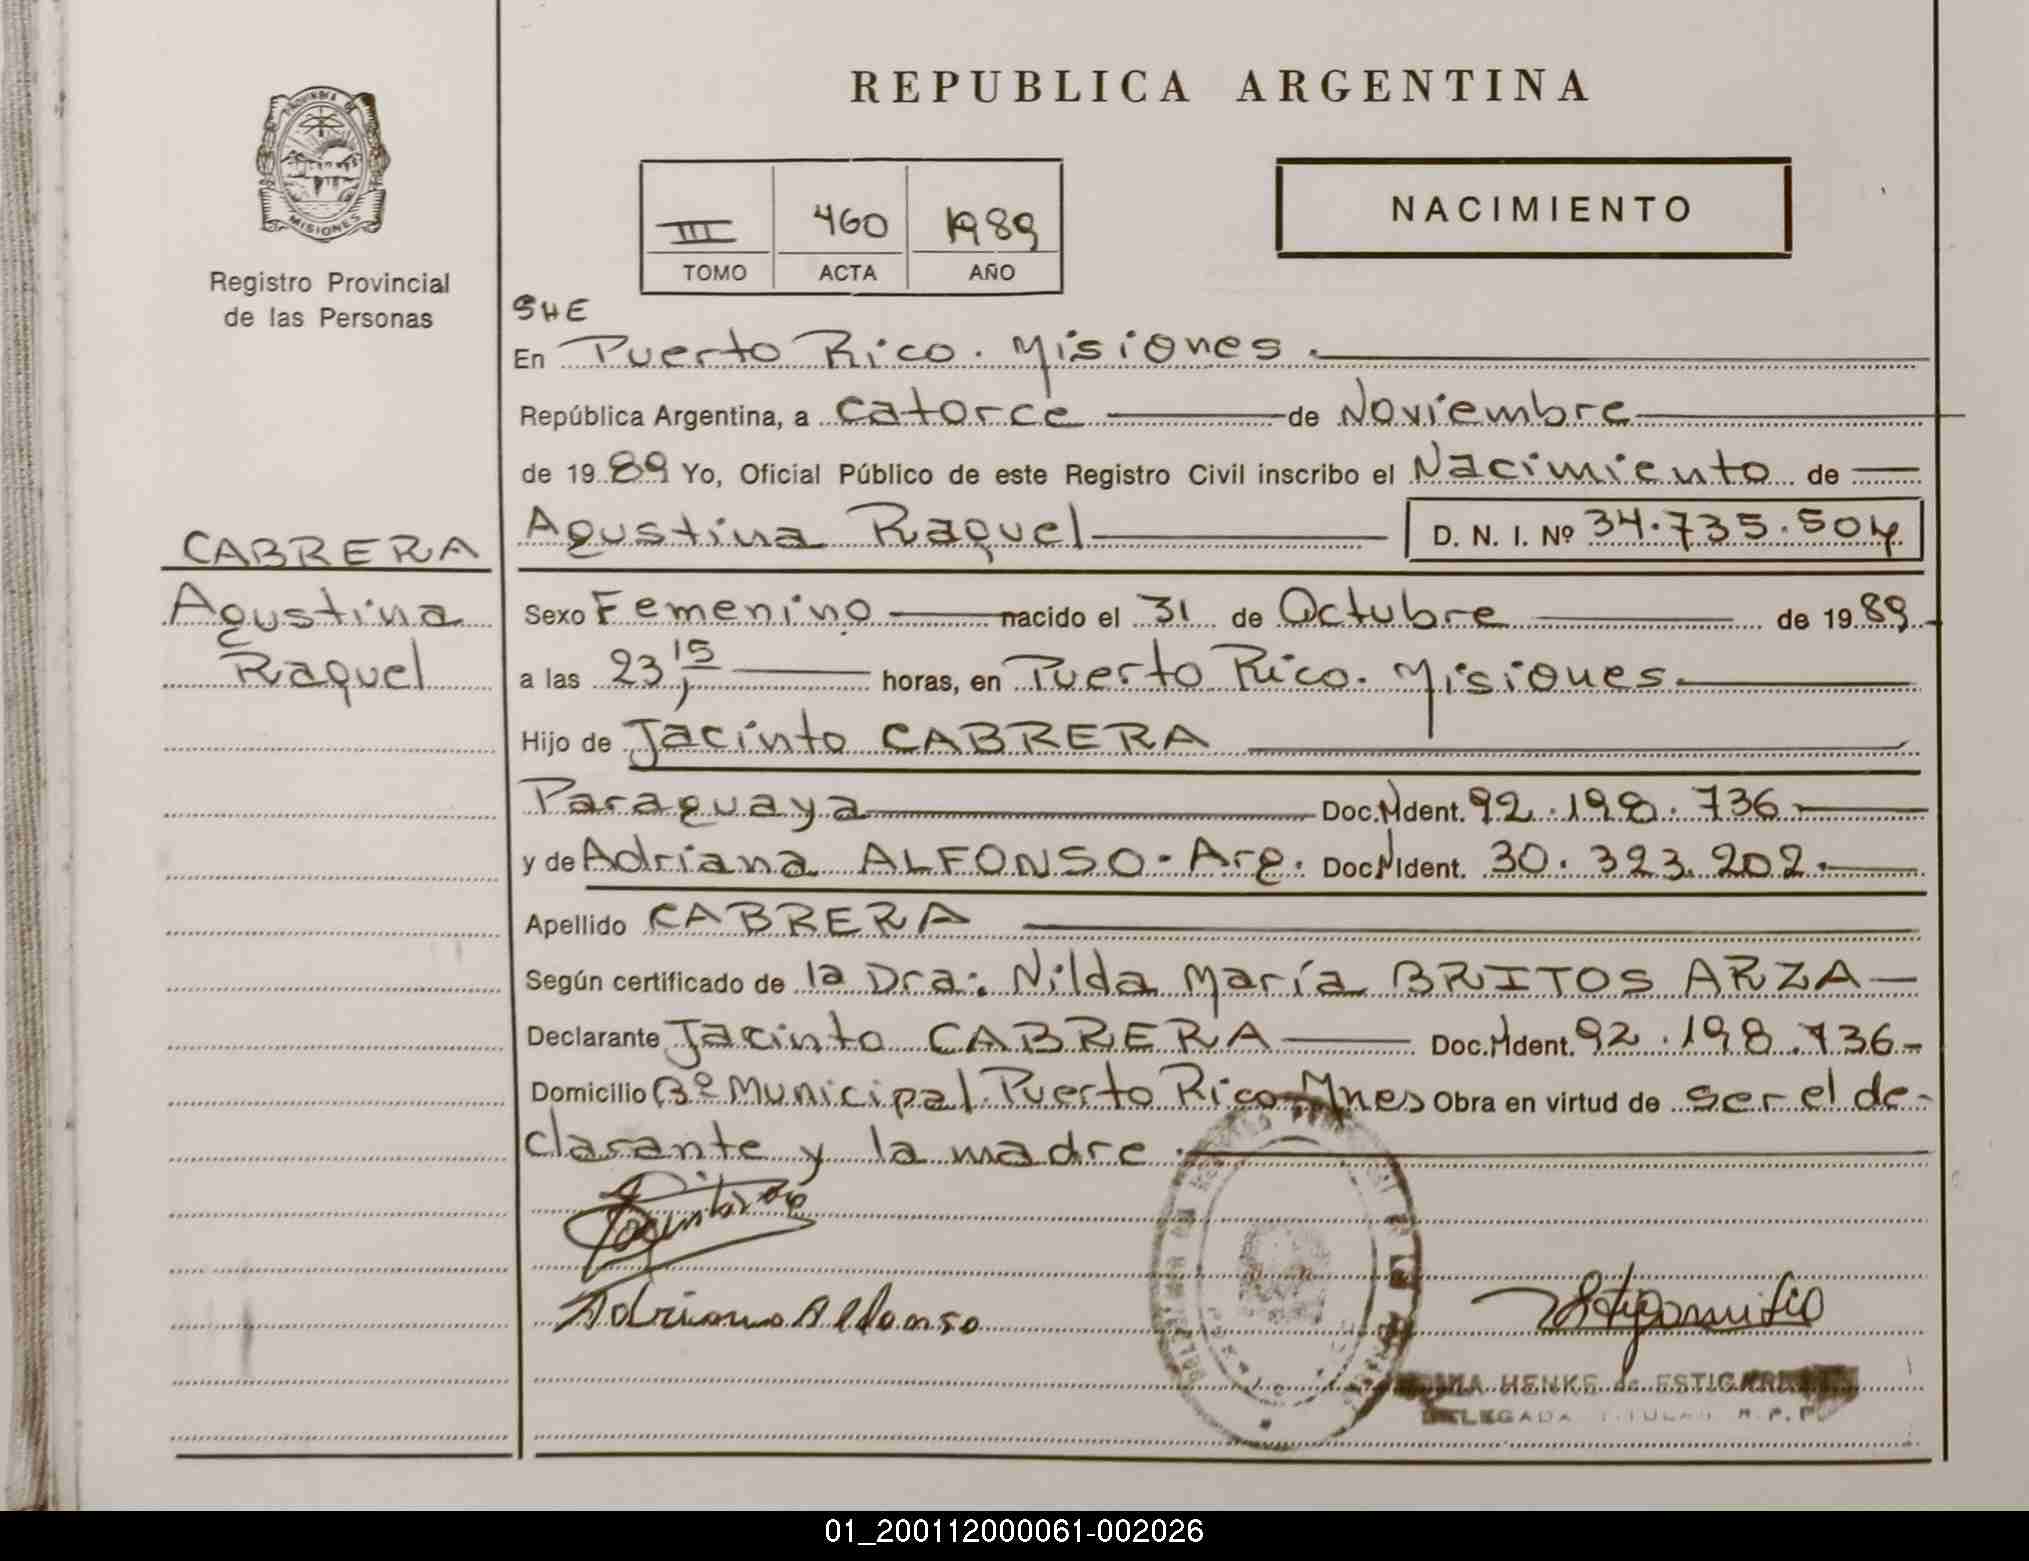 REPUBLICA ARGENTINA
PROVINCIA DE
MISIONES
Registro Provincial
de las Personas
III 460 1989
TOMO ACTA AÑO
NACIMIENTO
SHE
En Puerto Rico. Misiones.
República Argentina, a catorce de Noviembre
de 1989 Yo, Oficial Público de este Registro Civil inscribo el Nacimiento de
CABRERA
Agustina Raquel
Agustina Raquel D. N. I. Nº 34.735.504
Sexo Femenino nacido el 31 de Octubre de 1989
a las 23,15 horas, en Puerto Rico. Misiones.
Hijo de Jacinto CABRERA
Paraguaya Doc. N Ident. 92.198.736
y de Adriana ALFONSO - Arg. Doc. N Ident. 30.323.202.
Apellido CABRERA
Según certificado de la Dra: Nilda María BRITOS ARZA
Declarante Jacinto CABRERA Doc. N Ident. 92.198.736-
Domicilio Bº Municipal. Puerto Rico-Mnes Obra en virtud de ser el de-
clarante y la madre.
Adriana Alfonso
HENKE de ESTIGARRIBIA
DELEGADA TITULAR R.P.P.
01_200112000061-002026